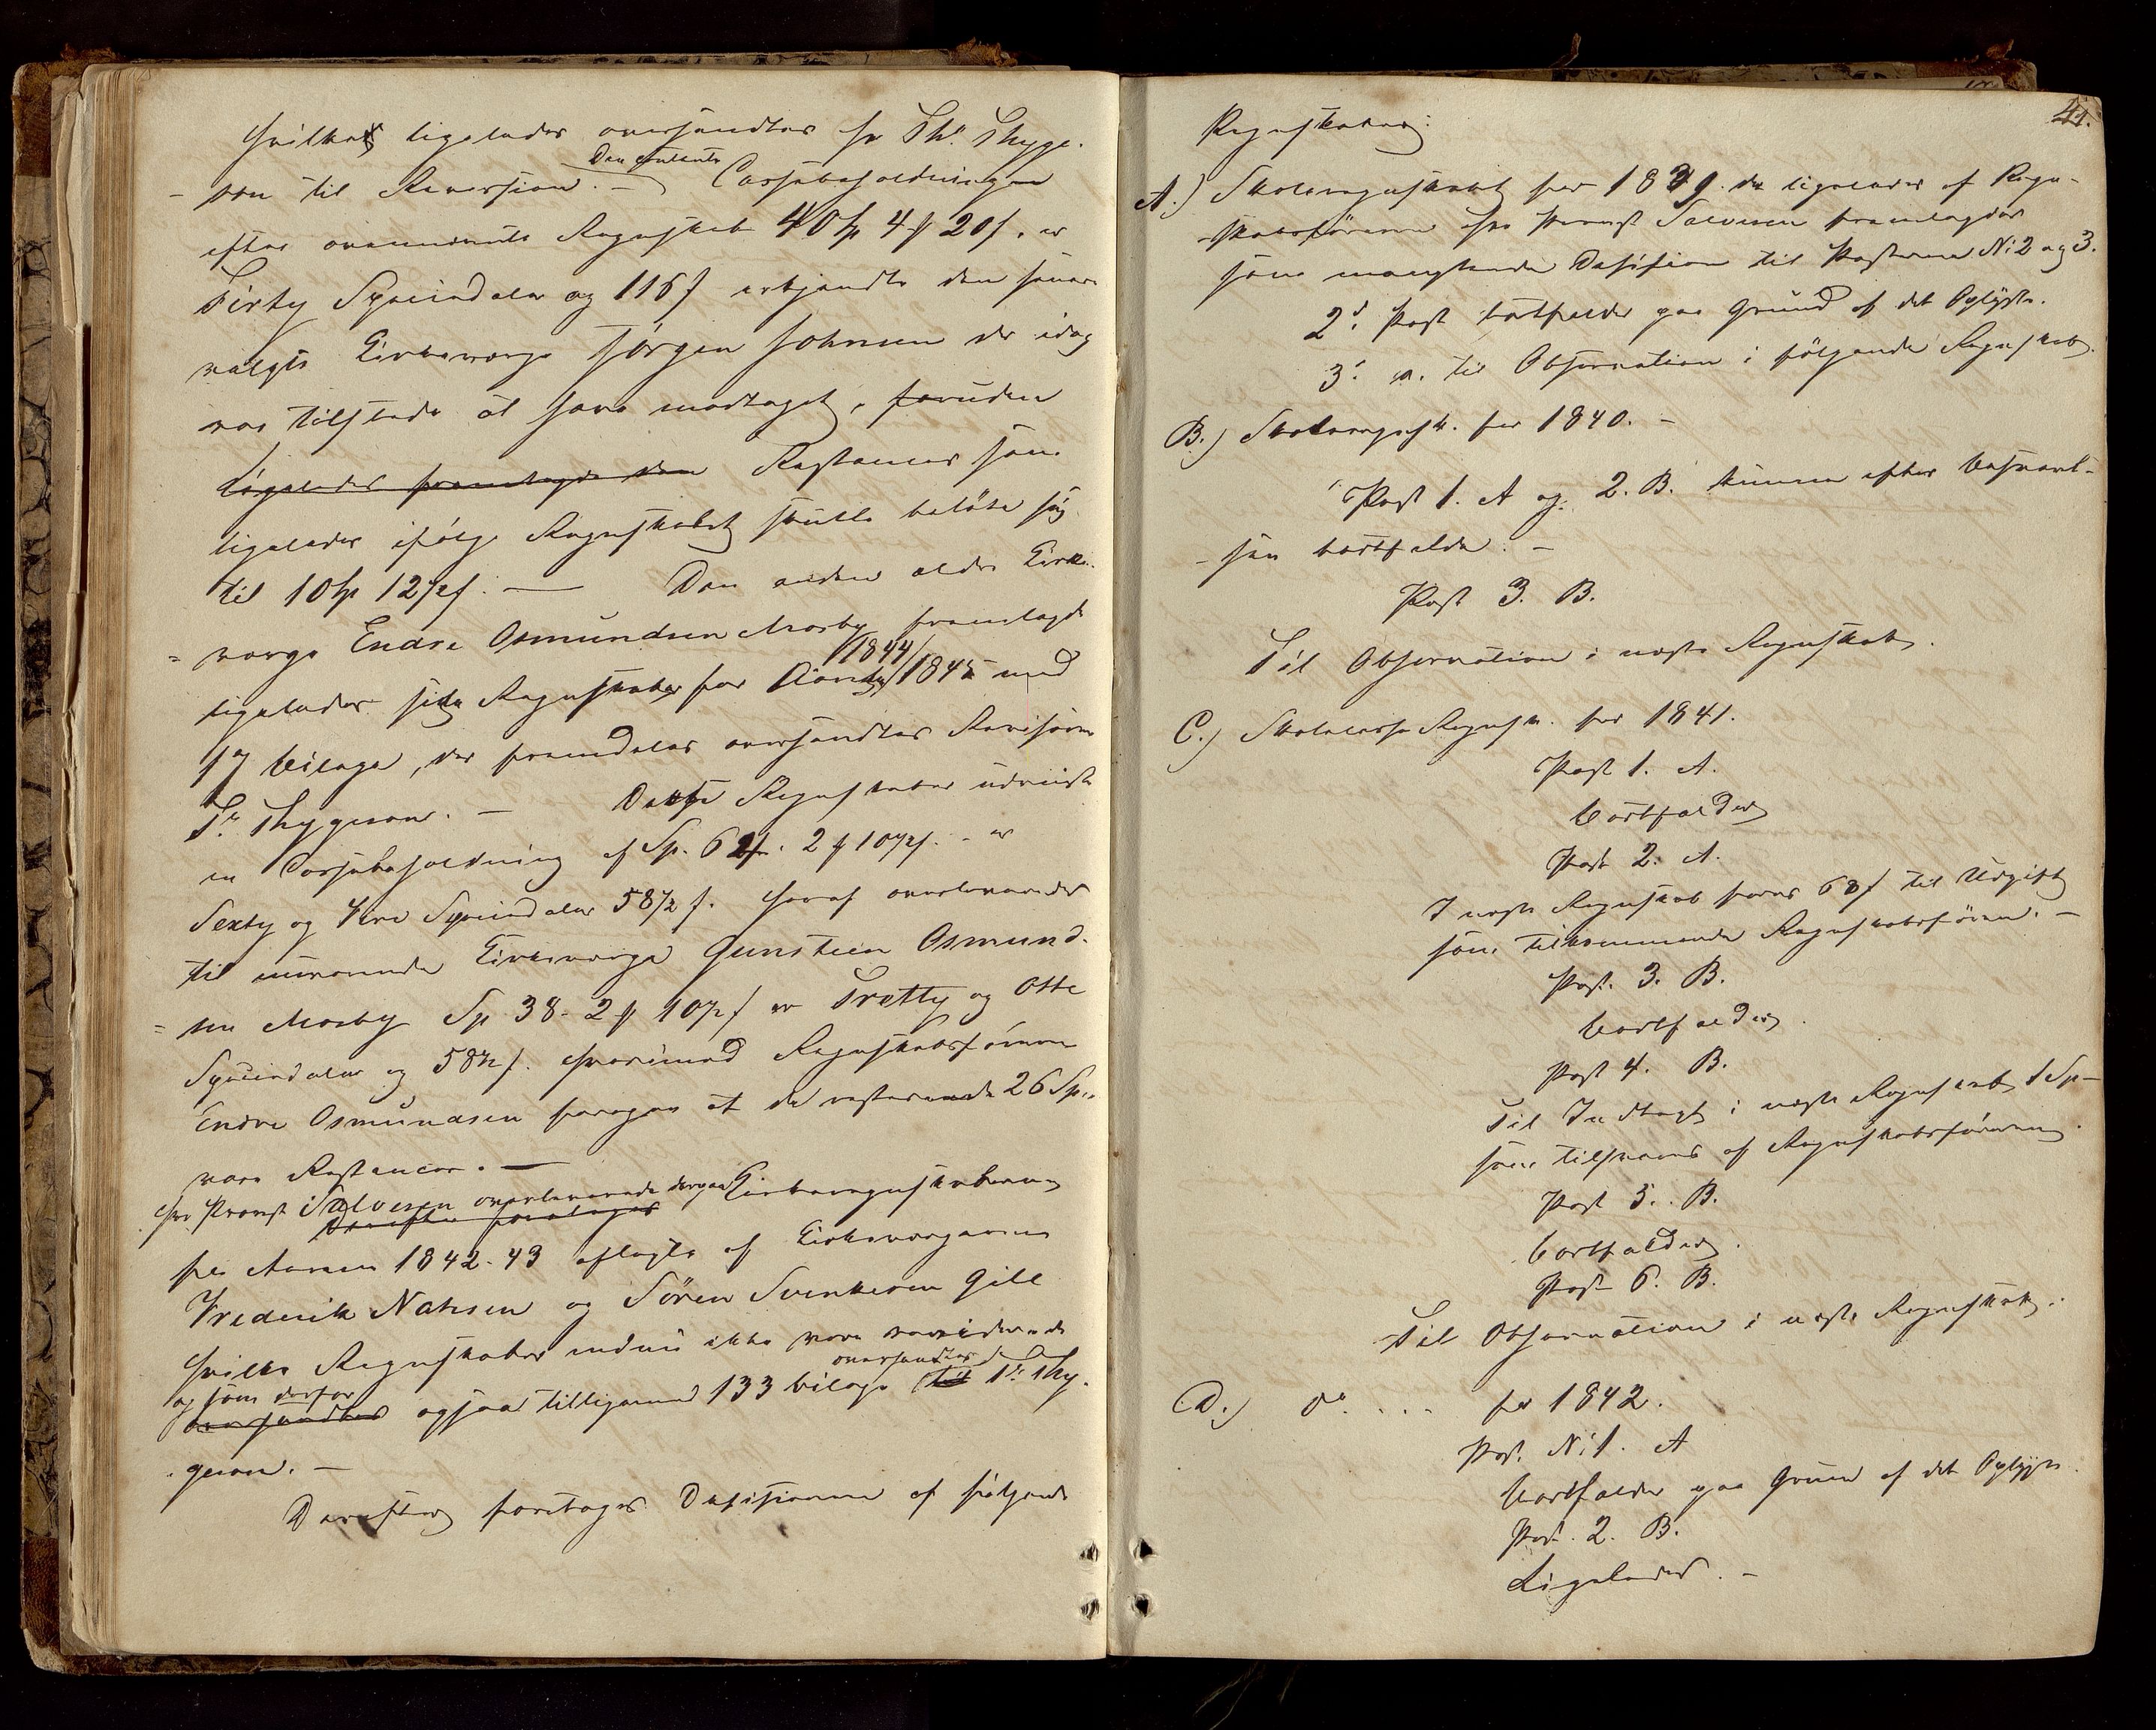 hvilket ligeledes oversendtes Hr Th. Thyge-
- son til Revession. - Den omtalte Cassebeholdningen
efter ovennævnte Regnskab 40 Sp 4 ℔ 20 s. er
Firty Speciedaler og 116 s erkjendte den senere
valgte Kirkeværge Jörgen Johnsen der idag
var tilstede at have modtaget, foruden
ligeledes fremlagde den Restancer som
ligeledes ifølge Regnskabet skulle beløbe sig
til 10 Sp 12½ s. — Den anden ældre Kirke-
= værge Endre Osmundsen Mosby fremlagde
ligeledes sine Regnskaber for Aarene 1844/1845 med
17 bilage, der fremdeles oversendtes Revisoren
Hr Thygeson. - Dette Regnskaber udviiste
en Cassebeholdning af Sp. 62. 2 ℔ 10½ s. - er
Sexty og tvo Speciedaler 58½ s. hvoraf overleveredes
til nuværende Kirkeværge Gunsteen Osmund-
= sen Mosby Sp 38 - 2 ℔ 10½ s er Tretty og Otte
Speciedaler og 58½ s. hvorimod Regnskabsføreren
Endre Osmundsen foregav at de resterende 26 Sp.
vare Restancer. —
Hr Provst Salvesen overleverede derpaa Kirkeregnskaberne
Derefter foretoges
for Aarene 1842-43 aflagte af Kirkeværgerne
Frederik Natvsen og Sören Svenkesen Gill
hvilke Regnskaber endnu ikke vare reviderede
og som derfor oversendtes
oversendtes ogsaa tilligemed 133 bilage til Hr Thy-
- geson. -
Derefter foretoges Desisionen af følgende
41.
Regnskaber:
A.) Skoleregnskabet for 1839. der ligeledes af Regn-
- skabsføreren Hr Provst Salvesen fremlagdes
som manglende Desision til Posterne No 2 og 3.
2d. Post bortfalder paa Grund af det Oplyste.
3. — til Observation i følgende Regnskab.
B.) Skoleregnsk. for 1840. -
Post 1. A og 2. B. kunne efter besvarel-
- sen bortfalde. -
Post 3. B.
Til Observation i næste Regnskab.
C.) Skolecasse Regnsk. for 1841.
Post 1. A.
bortfalder
Post 2. A.
I næste Regnskab føres 68 s til Udgift
som tilkommende Regnskabsføreren. -
Post. 3. B.
bortfalder.
Post 4. B.
Til Indtægt i næste Regnskab 1 Sp -
som tilsvares af Regnskabsføreren.
Post 5. B.
bortfalder.
Post 6. B.
Til Observation i næste Regnskab.
D.) do. . . . for 1842.
Post. No 1. A
bortfalder paa Grund af det Oplyste.
Post. 2. B.
Ligeledes. -